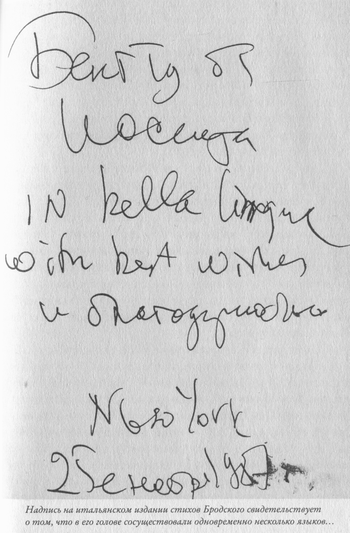 Бенгту от
Иосифа
in bella lingua
with best wishes
и благодарностью
New York
25 ноябр 1987
Надпись на итальянском издании стихов Бродского свидетельствует
о том, что в его голове сосуществовали одновременно несколько языков…